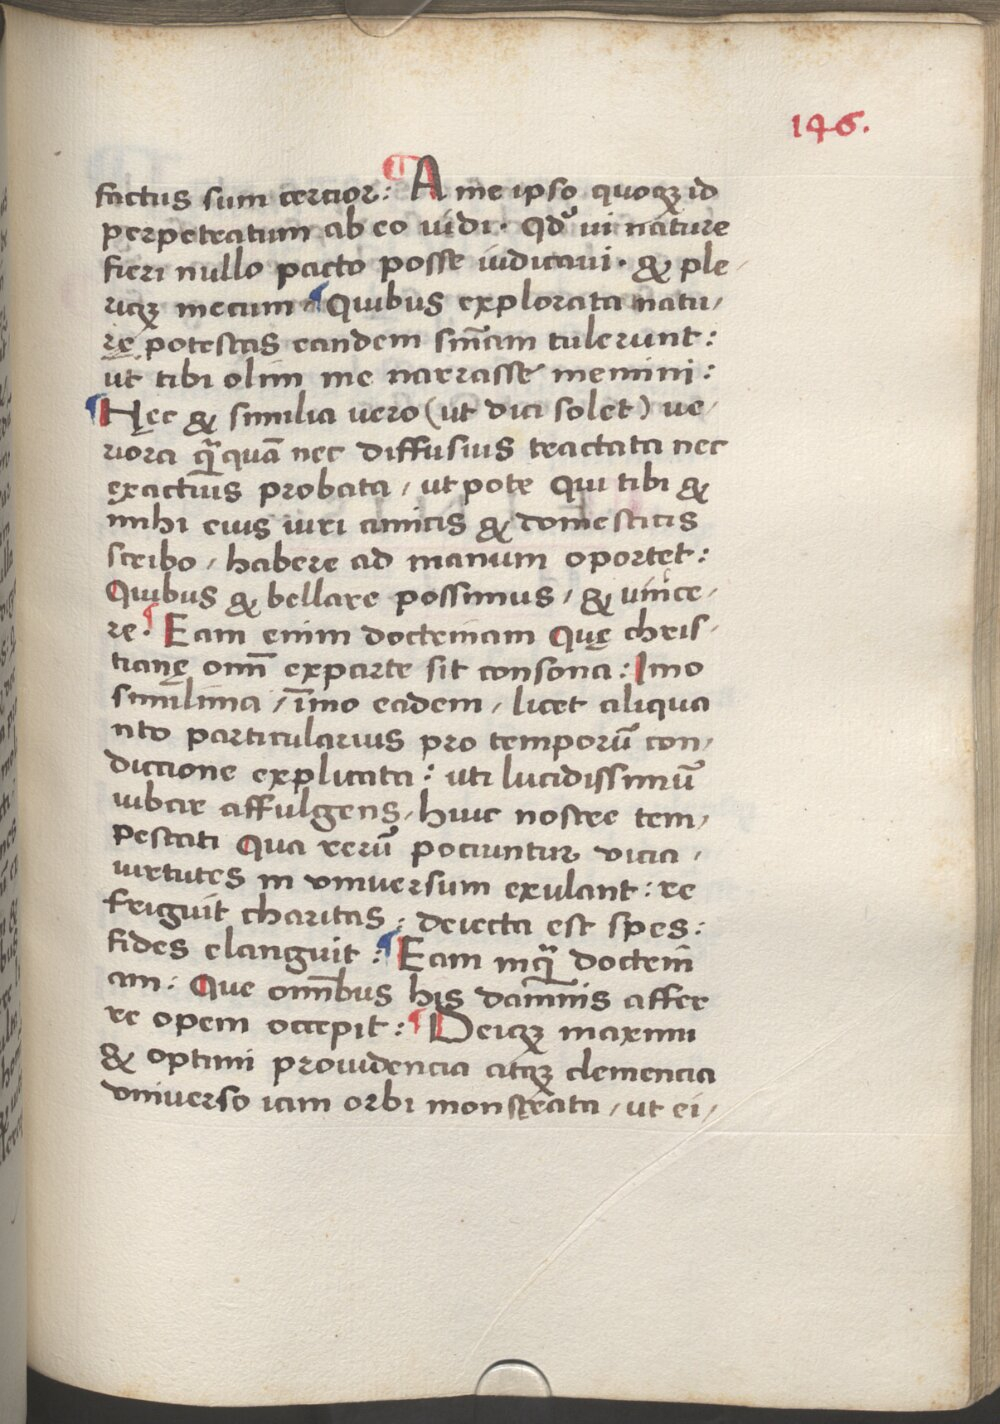 146.
factus sum cercior: A me ipso quoqꝫ id
perpetratum ab eo uidi. Qđ ui nature
fieri nullo pacto posse iudicaui. & ple-
riqꝫ mecum. Quibus explorata natu-
rę potestas eandem sn̄iam tulerunt:
ut tibi olim me narrasse memini:
Hęc & similia uero (ut dici solet) ue-
riora q̄ꝫquā nec diffusius tractata nec
exactius probata, utpote qui tibi &
mihi eius uiri amicis & domesticis
scribo, habere ad manum oportet:
Quibus & bellare possimus, & uince-
re. Eam enim doctrinam Quę chris-
tianę omn̄ exparte sit consona: Imo
simillima, īmo eadem, licet aliqua
nto particularius pro temporū con-
diccione explicata: uti lucidissimū
iubar affulgens, huic nostre tem-
pestati Qua rerū pociuntur vicia,
uirtutes in vniuersum exulant: re
friguit charitas: deiecta est spes:
fides elanguit: Eam inq̄ꝫ doctrin̄
am: Que omn̄ibus his damnis affer
re opem occepit: Deiqꝫ maximi
& optimi prouidencia atqꝫ clemencia
vniuerso iam orbi monstrata, ut ei-